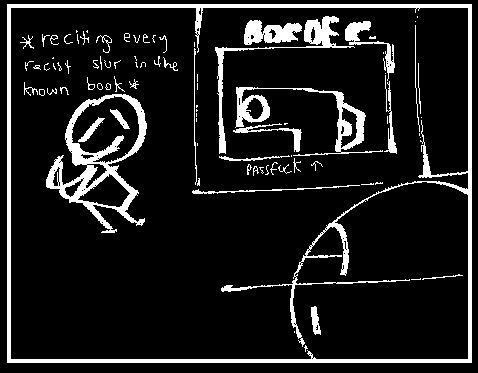 *reciting every
racist slur in the
known book*
BORDER
PASSFUCK ↑